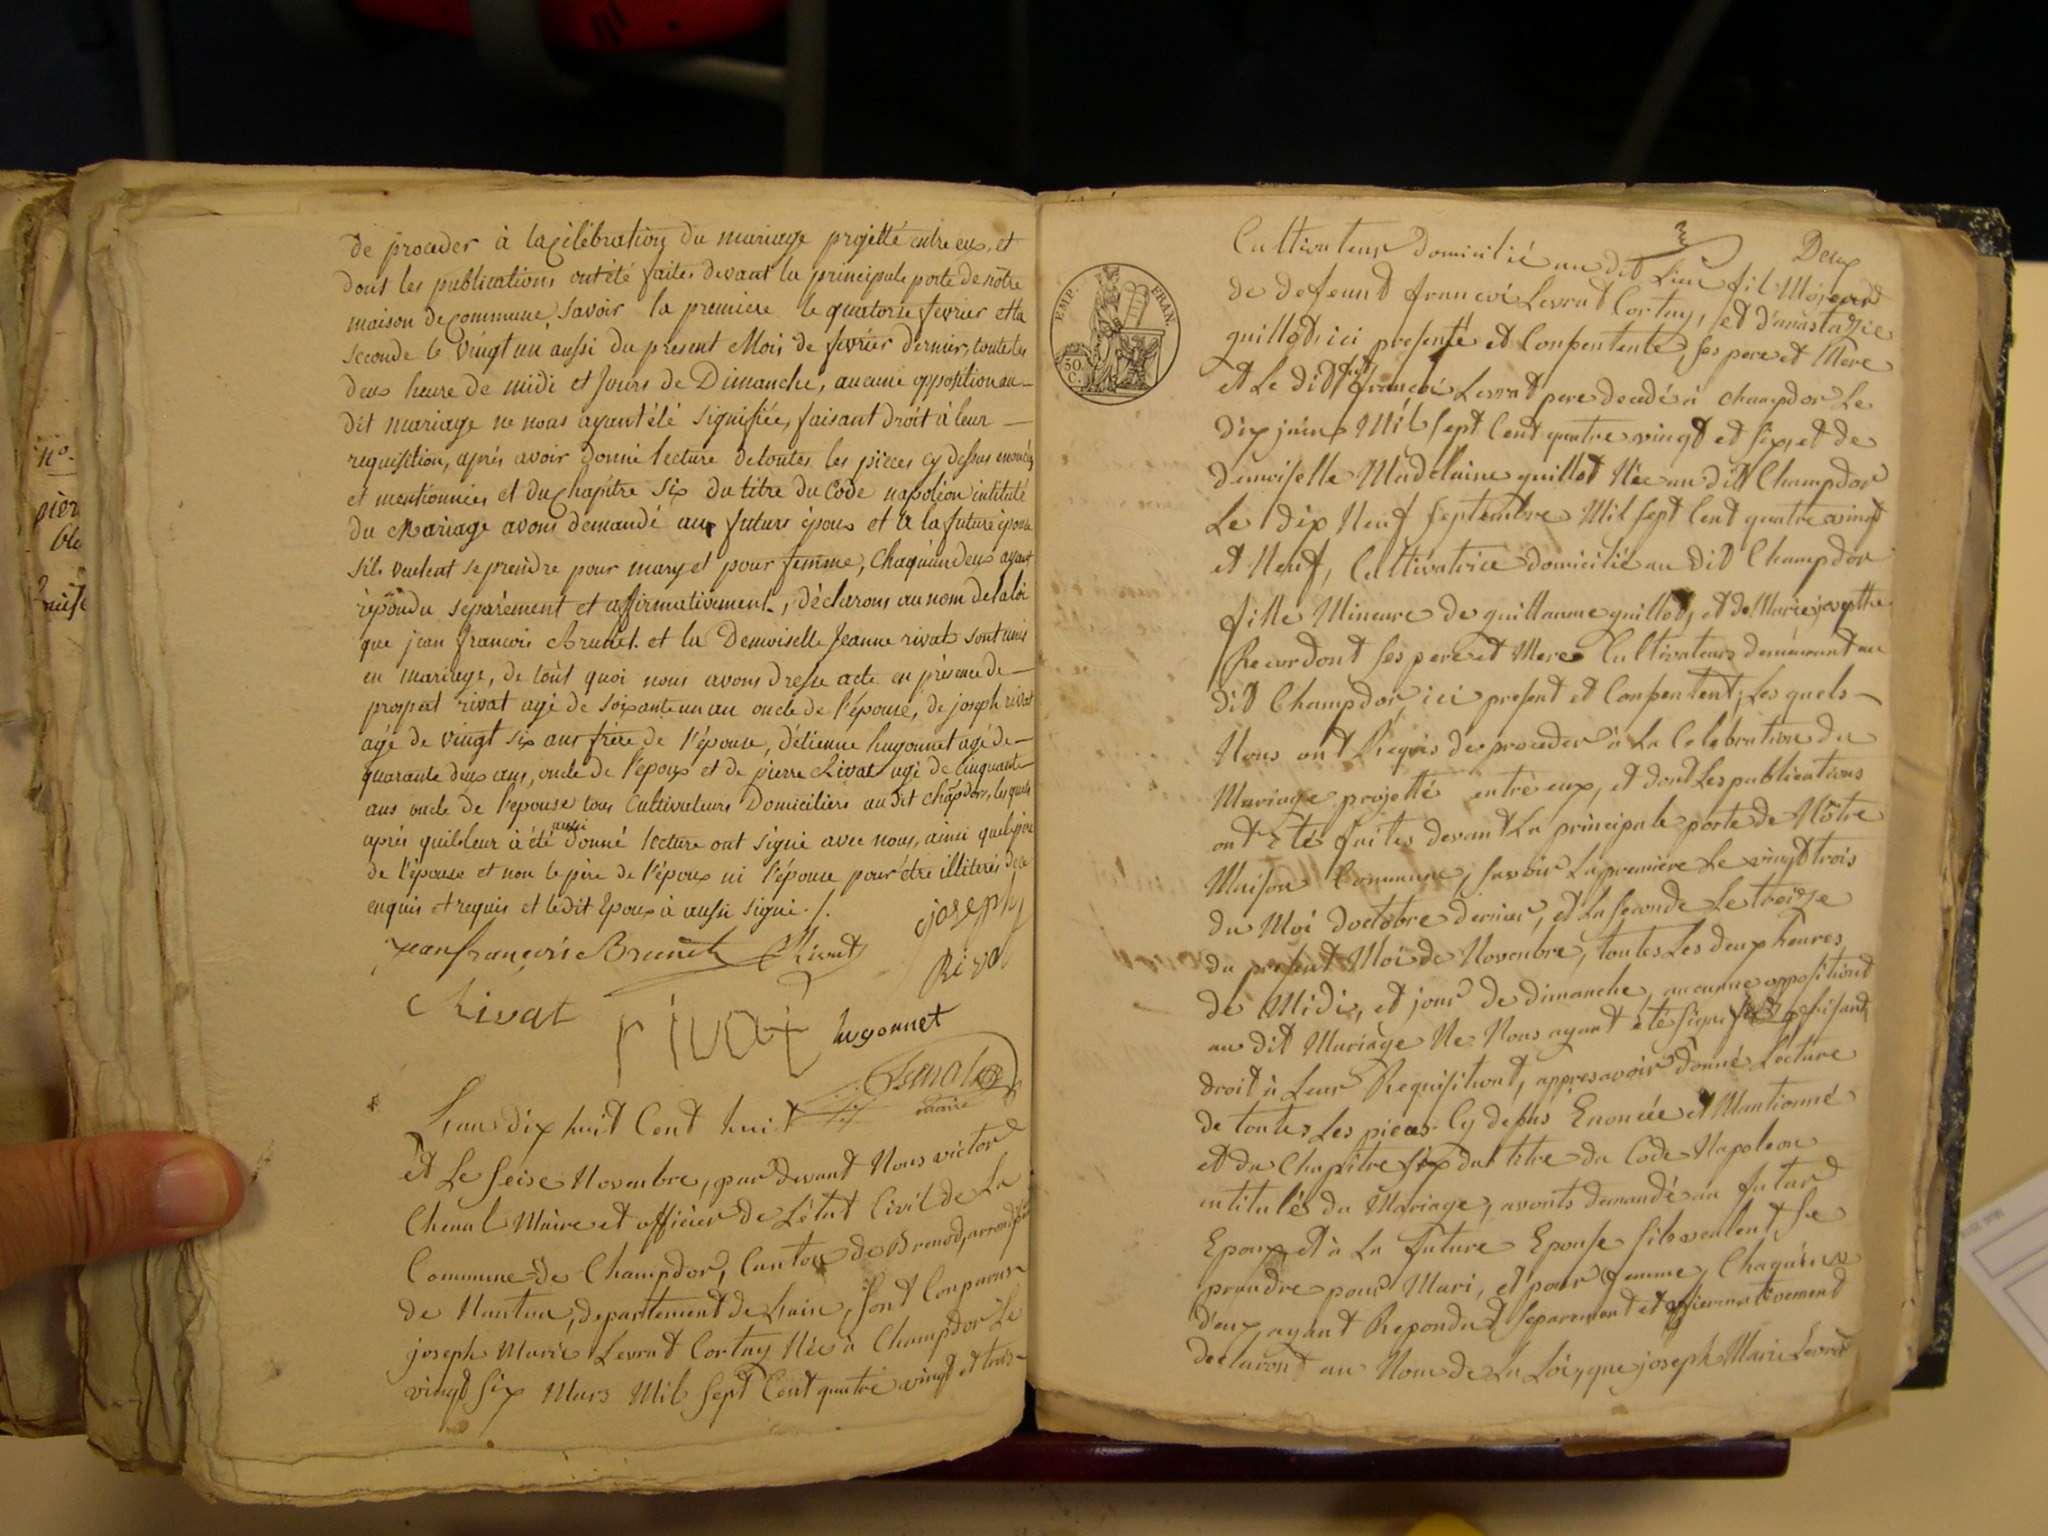 de proceder à la célébration du mariage projetté entre eux, et
dont les publications ont été faites devant la principale porte de nôtre
maison de commune, savoir la premiere le quatorse fevrier et la
seconde le vingt un aussi du present Mois de fevrier dernier, toutes les
deux heure de midi et Jours de Dimanche, aucune opposition au
dit mariage ne nous ayant été signifiée, faisant droit à leur
requisition, aprés avoir donné lecture de toutes les pièces cy dessus enoncées
et mentionnées et du chapitre six du titre du Code napoléon intitulé
du Mariage avons demandé aux futurs époux et a la future épouse
s'ils veulent se prendre pour mary et pour femme, chaquun deux ayant
répondu separément et affirmativement, déclarons au nom de la loi
que jean francois Brunet et la Demoiselle Jeanne rivat sont unis
en mariage, de tout quoi nous avons dressé acte en présence de
prospert rivat agé de soixante un an oncle de l'épouse, de joseph rivat
agé de vingt six ans frère de l'épouse, d'étienne hugonnet agé de
quarante deux ans, oncle de l'epoux et de pierre Rivat agé de cinquante
ans oncle de l'epouse tous Cultivateurs Domiciliers au dit champdor, lesquels
aprés qu'il leur à été aussi donné lecture ont signé avec nous, ainsi que le père
de l'épouse et non le père de l'époux ni l'épouse pour être illiterés de ce
enquis et requis et ledit Epoux à aussi signé ./.
jean françois Brunet Rivat joseph
Riva
Rivat rivat hugonnet
Chenal
maire
L'an dix huit Cent huit
et Le seise Novembre, par devant Nous victor
Chenal Maire et officier de L'état Civil de La
Commune de Champdor, Canton de Brenod, arrondis
de Nantua, departement de L'ain, sont Conparus
joseph Marie Levrat Cortay Née à Champdor Le
vingt six Mars Mil sept Cent quatre vingt et trois
Deux
EMP. FRAN.
50 C.
Cultivateur domicilié au dit Lieu fil Majeur
de defeunt françoi Levrat Cortay, et d'anastazie
guillot ici presente et Conpentente, ses pere et Mere
et Le dit françoi Levrat pere decedé à champdor Le
dix juin Mil sept Cent quatre vingt et six, et de
demoiselle Madelaine guillot Née au dit Champdor
Le dix Neuf septembre Mil sept Cent quatre vingt
et Neuf, Cultivatrice domicilié au dit Champdor
fille Mineure de guillaume guillot, et de Marie josepthe
Recordont ses pere et Mere Cultivateurs demeurant au
dit Champdor ici present et Conpentent, Les quels
Nous ont Requis de proceder à La Celebration du
Mariage projetté entre eux, et dont Les publications
ont Eté faites devant La principale porte de Nôtre
Maison Commune, savoir La premiére Le vingt trois
du Moi doctobre dernier, et La seconde Le treize
du present Moi de Novembre, toutes Les deux heures
de Midi, et jour de dimanche, aucunne oppositiont
au dit Mariage Ne Nous ayant été signifié faisant
droit à Leur Requisitiont, appres avoir donné Lecture
de toutes Les pieces Cy dessus Enoncée et Mantionné
et du Chapitre six du titre du Code Napoleon
intitulés du Mariage, avonts demandé au futur
Epoux et à La future Epouse sils veulent se
prandre pour Mari, et pour femme, Chaquuns
d'eux, ayant Repondut separement et affiermativement
declaront au Nom de La Loi, que joseph Marie Levrat